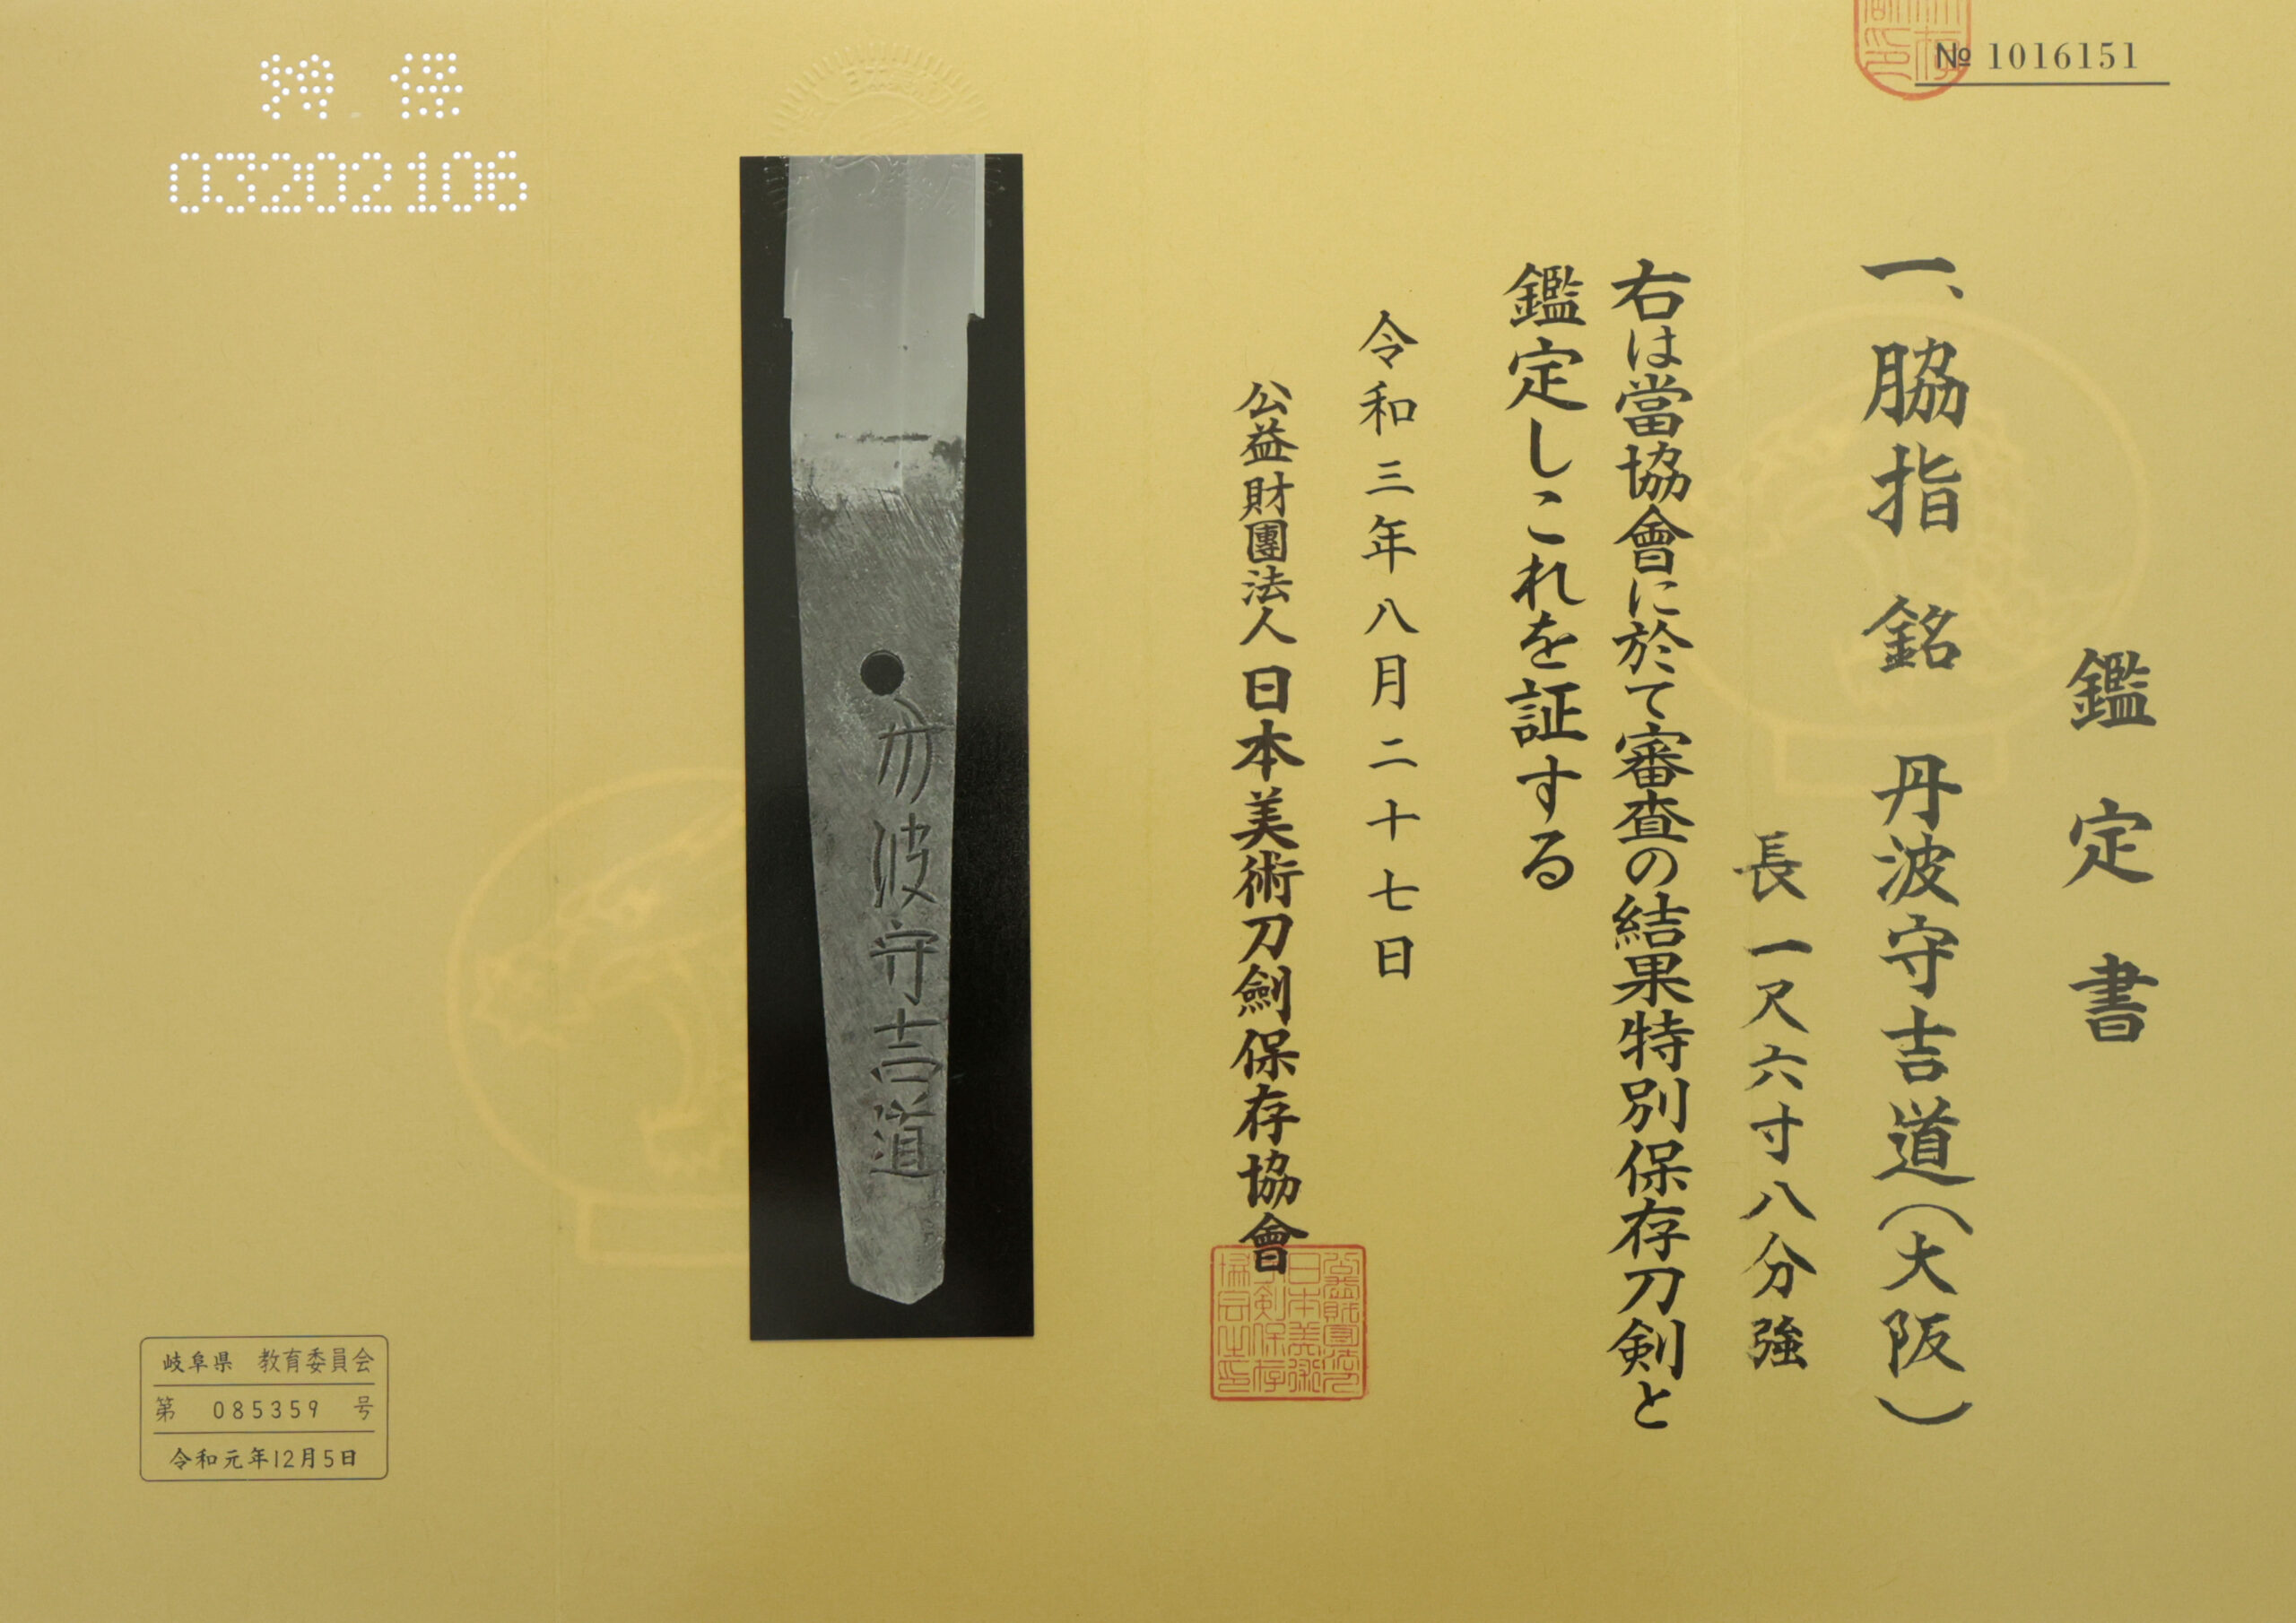 № 1016151
鑑定書
一、脇指 銘 丹波守吉道(大阪)
長一尺六寸八分強
右は當協會に於て審査の結果特別保存刀剣と
鑑定しこれを証する
令和三年八月二十七日
公益財團法人日本美術刀劍保存協會
丹波守吉道
特保
03202106
岐阜県 教育委員会
第 085359 号
令和元年12月5日